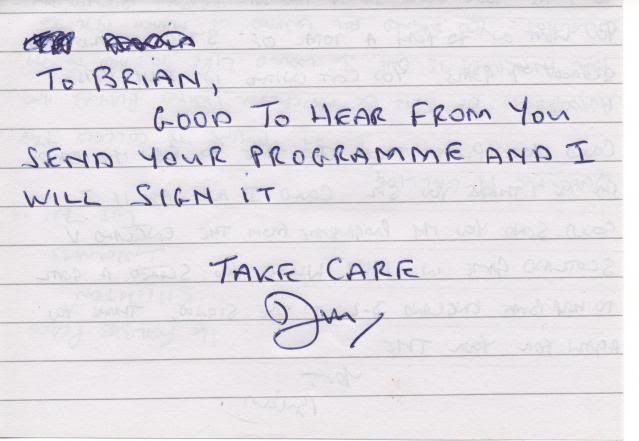 To BRIAN,
GOOD TO HEAR FROM YOU
SEND YOUR PROGRAMME AND I
WILL SIGN IT
TAKE CARE